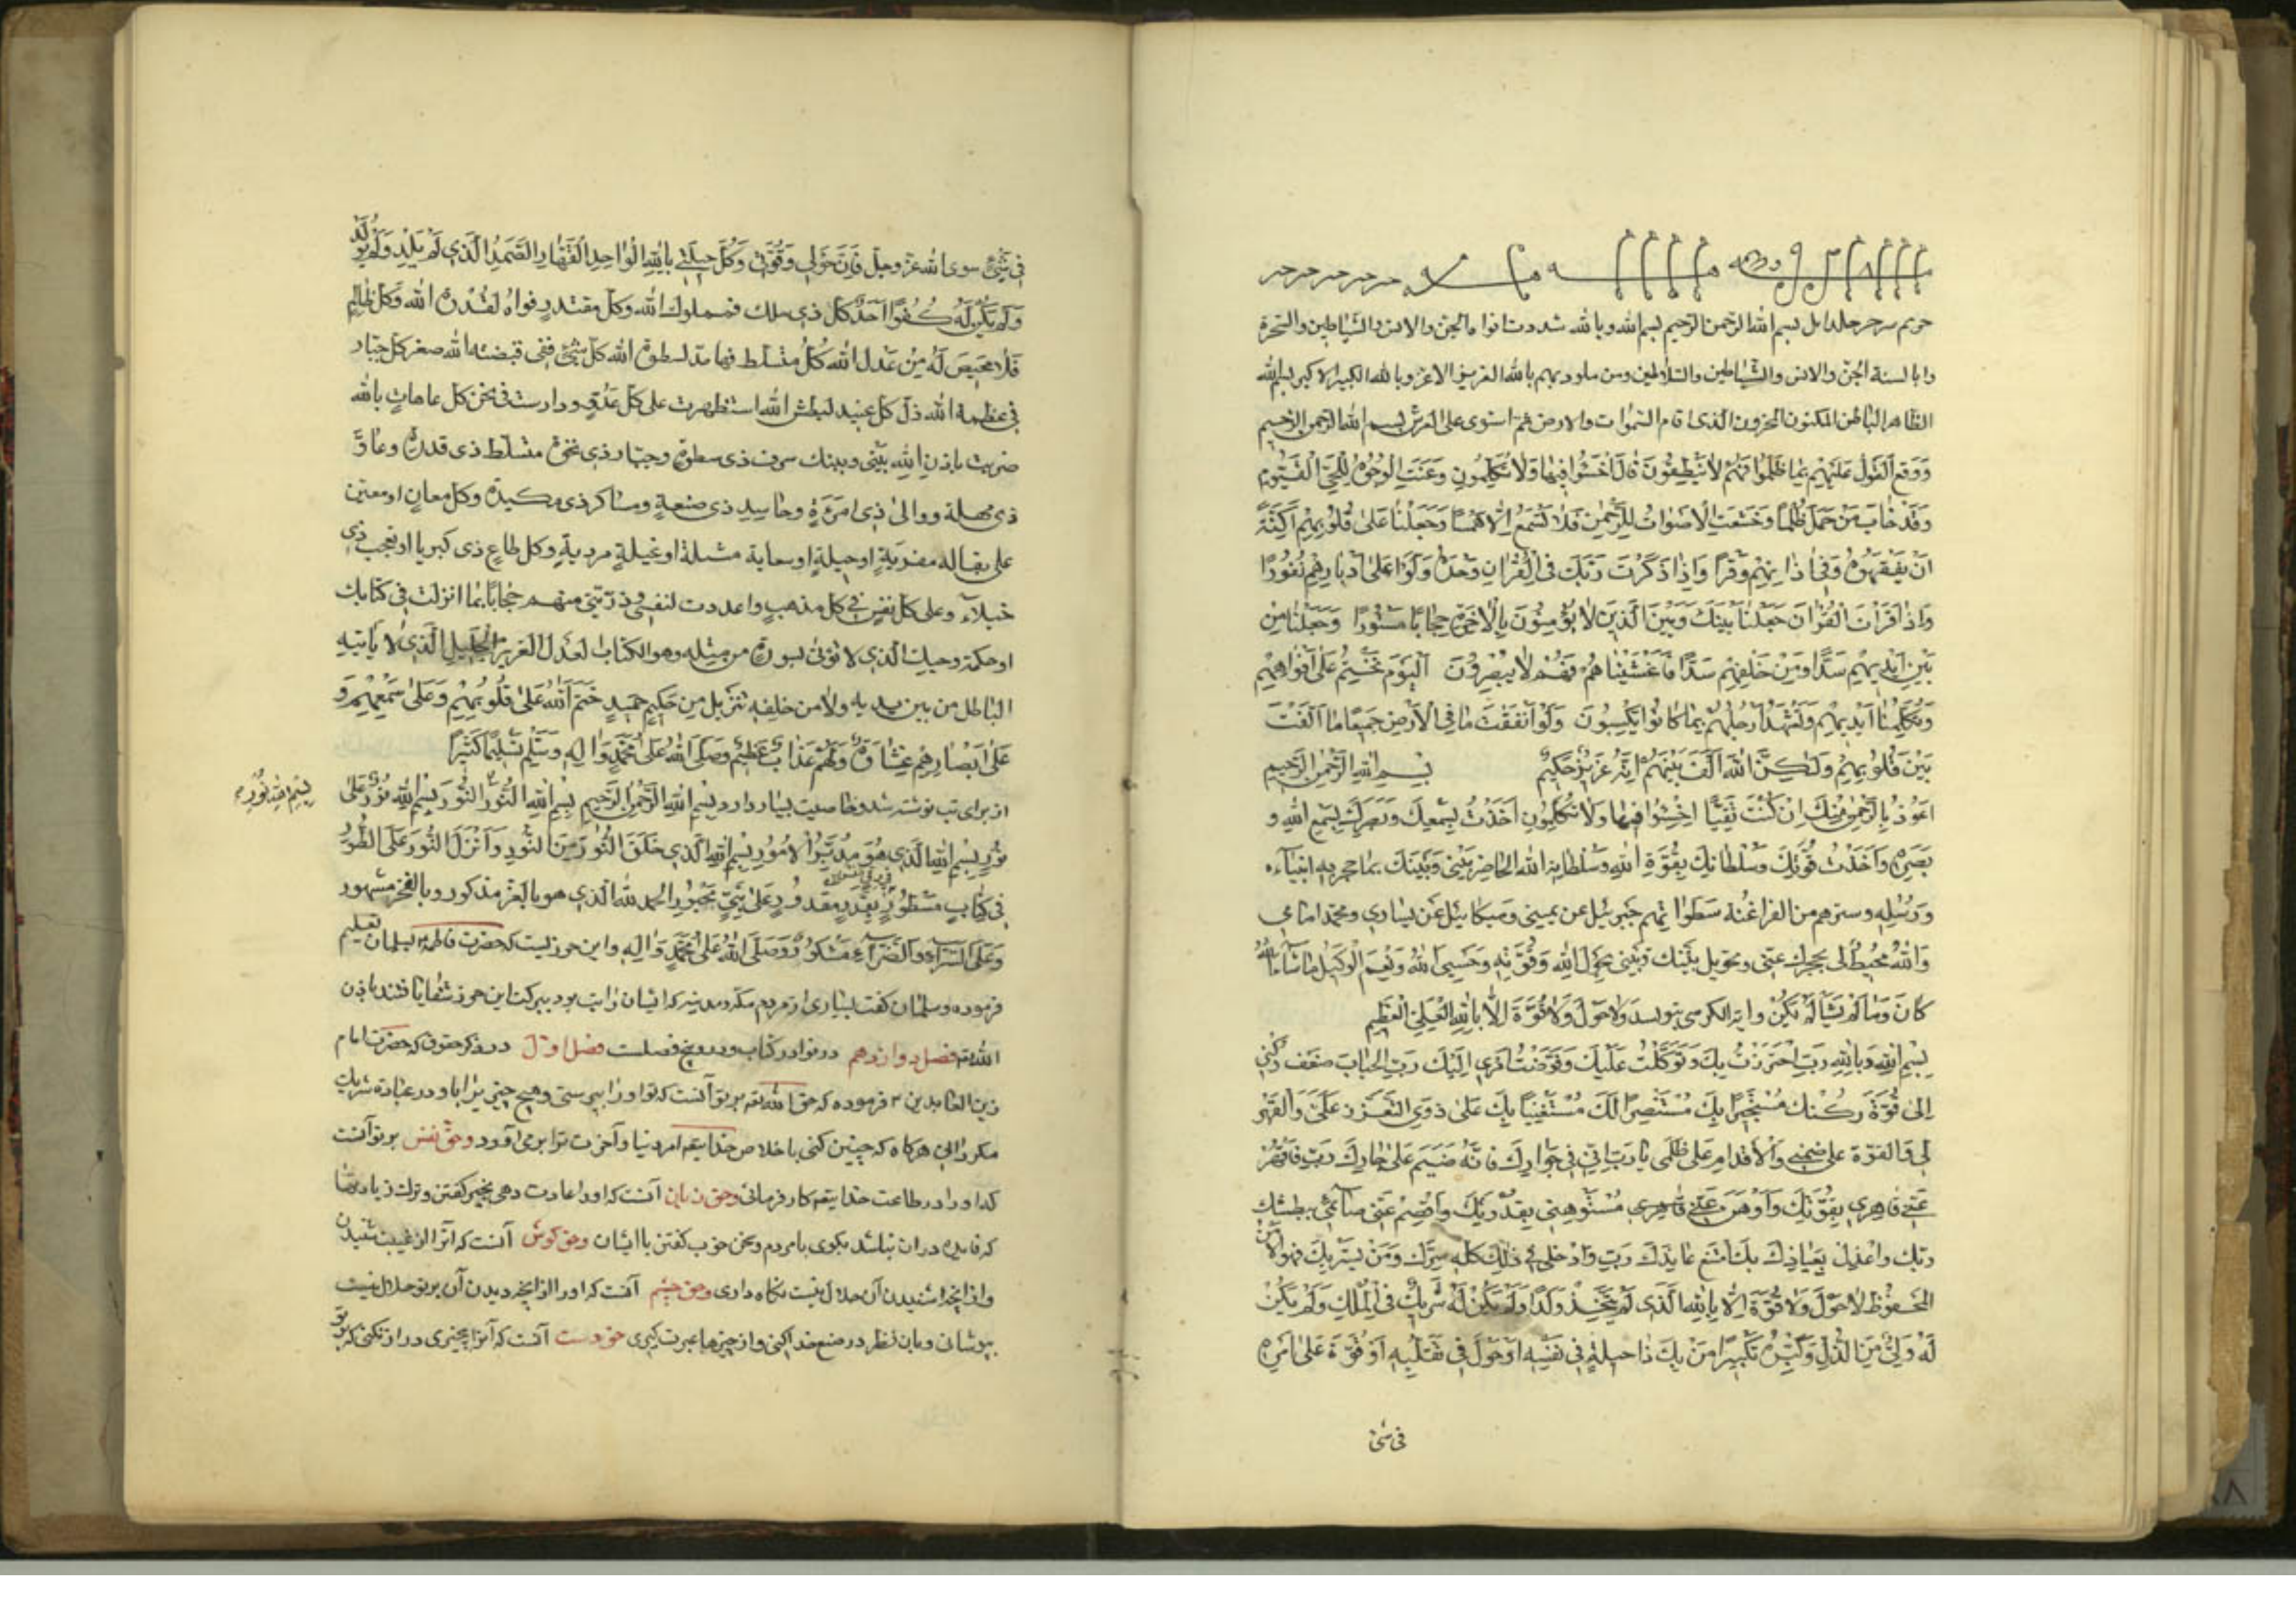 بسم الله الرحمن الرحيم بسم الله وبالله شددت افواه الجن والانس والشياطين والسحرة
والابالسة الجن والانس والشياطين والسلاطين ومن يلوذ بهم بالله العزيز الاعز وبالله الكبير الاكبر بسم الله
الظاهر الباطن المكنون المخزون الذى اقام السموات والارض ثم استوى على العرش بسم الله الرحمن الرحيم
وَوَقَعَ الْقَوْلُ عَلَيْهِمْ بِمَا ظَلَمُوا فَهُمْ لَا يَنْطِقُونَ قَالَ اخْسَئُوا فِيهَا وَلَا تُكَلِّمُونِ وَعَنَتِ الْوُجُوهُ لِلْحَيِّ الْقَيُّومِ
وَقَدْ خَابَ مَنْ حَمَلَ ظُلْمًا وَخَشَعَتِ الْأَصْوَاتُ لِلرَّحْمٰنِ فَلَا تَسْمَعُ إِلَّا هَمْسًا وَجَعَلْنَا عَلَىٰ قُلُوبِهِمْ أَكِنَّةً
أَنْ يَفْقَهُوهُ وَفِي آذَانِهِمْ وَقْرًا وَإِذَا ذَكَرْتَ رَبَّكَ فِي الْقُرْآنِ وَحْدَهُ وَلَّوْا عَلَىٰ أَدْبَارِهِمْ نُفُورًا
وَإِذَا قَرَأْتَ الْقُرْآنَ جَعَلْنَا بَيْنَكَ وَبَيْنَ الَّذِينَ لَا يُؤْمِنُونَ بِالْآخِرَةِ حِجَابًا مَسْتُورًا وَجَعَلْنَا مِنْ
بَيْنِ أَيْدِيهِمْ سَدًّا وَمِنْ خَلْفِهِمْ سَدًّا فَأَغْشَيْنَاهُمْ فَهُمْ لَا يُبْصِرُونَ الْيَوْمَ نَخْتِمُ عَلَىٰ أَفْوَاهِهِمْ
وَتُكَلِّمُنَا أَيْدِيهِمْ وَتَشْهَدُ أَرْجُلُهُمْ بِمَا كَانُوا يَكْسِبُونَ وَلَوْ أَنْفَقْتَ مَا فِي الْأَرْضِ جَمِيعًا مَا أَلَّفْتَ
بَيْنَ قُلُوبِهِمْ وَلَكِنَّ اللَّهَ أَلَّفَ بَيْنَهُمْ إِنَّهُ عَزِيزٌ حَكِيمٌ بِسْمِ اللَّهِ الرَّحْمٰنِ الرَّحِيمِ
اَعُوذُ بِالرَّحْمٰنِ مِنْكَ اِنْ كُنْتَ تَقِيًّا اِخْسَئُوا فِيهَا وَلَا تُكَلِّمُونِ اَخَذْتُ بِسَمْعِكَ وَبَصَرِكَ بِسَمْعِ اللهِ وَ
بَصَرِهِ وَاَخَذْتُ قُوَّتَكَ وَسُلْطَانَكَ بِقُوَّةِ اللهِ وَسُلْطَانِهِ الله الحَاجِز بَيْنِي وَبَيْنَكَ بما حجز به انبياءه
وَرُسُلِهِ وسترهم من الفراعنة سَطَوَاتِهِم جَبرئيل عن يميني وَميكائيل عَن يساري ومحمد امامي
وَاللهُ مُحِيطٌ لي يحجزك عني ويحول بينك وبيني بحول الله وَقُوَّتِهِ وَحَسبِيَ الله وَنِعمَ الوَكيل مَا شَاءَ اللهُ
كَانَ وَمَا لَمْ يَشَأْ لَمْ يَكُنْ واية الكرسى بنويسد وَلا حَوْلَ وَلا قُوَّةَ اِلّا بِاللهِ العَلِيِّ الْعَظيمِ
بِسْمِ اللهِ وَبِاللهِ رَبِّ احْتَرَزْتُ بِكَ وَتَوَكَّلْتُ عَلَيْكَ وَفَوَّضْتُ اَمْرِي اِلَيْكَ رَبِّ الْجَاْتُ ضعف رُكني
اِلىٰ قُوَّةِ رُكْنِكَ مُسْتَجِيرًا بِكَ مُسْتَنْصِرًا لَكَ مُسْتَعينًا بِكَ عَلىٰ ذَوِي التَّعَزُّزِ عَلَيَّ وَالقَهْرِ
لي وَالقوّة على ضيمي وَالاقدامِ عَلىٰ ظُلمي يا رَبِّ اِنّي في جَوارِكَ فَاِنَّهُ لا ضَيْمَ عَلىٰ جارِكَ رَبِّ فَاقْهَرْ
عَنّي قاهِرِي بِقُوَّتِكَ وَاَوْهِنْ عَنّي مُسْتَوْهِني بِقُدْرَتِكَ وَاقْصِمْ عَنّي ضائمي ببطشك
رَبِّ واَعِذْني بِعِياذِكَ بِكَ امتنع عائذك رَبِّ وَاَدْخِلْني في ذٰلِكَ كُلِّهِ سِترك وَمَنْ يستر بِكَ فهو الآمن
المَحفُوظ لا حَوْلَ وَلا قُوَّةَ اِلّا بِاللهِ الَّذي لَمْ يَتَّخِذْ وَلَدًا وَلَمْ يَكُنْ لَهُ شَرِيكٌ في الْمُلْكِ وَلَمْ يَكُنْ
لَهُ وَلِيٌّ مِنَ الذُّلِّ وَكَبِّرْهُ تَكْبِيرًا مَنْ يَكُ ذا حيلَةٍ في نَفْسِهِ اَوْ حَوْلَ في تَقَلُّبِهِ اَوْ قُوَّةَ عَلىٰ اَمْرِهِ
في شئ
في شَيْءٍ سوى الله عز وجل فَاِنَّ حَوْلي وَقُوَّتي وَكُلَّ حيلَتي بِاللهِ الواحِدِ القَهّارِ الصَّمَدِ الَّذي لَمْ يَلِدْ وَلَمْ يُولَدْ
وَلَمْ يَكُنْ لَهُ كُفُوًا اَحَدٌ كُلّ ذي ملك فمملوك الله وكل مقتدر فواه لقدرة الله وكل ظالم
فَلا مَحيصَ لَهُ مِنْ عَدل الله كُلُّ مُتَسَلِّط لسطوة الله كلّ شئ ففى قبضته الله صغر كل جبار
في عظمة الله ذلّ كل عنيد لبطش الله استظهرت على كل عدوّ ودرات في نحر كل عات بالله
ضربت باذنِ اللهِ بَيْني وبينك كل ذى سطوة وجبار ذي نخوة متسلط ذى قدرة
ذى مهلة ووالى ذي امرَةٍ وحاسِدِ ذى صنعةٍ وماكر ذى مكيدة وكل معانٍ او معين
على بقالة مغريةٍ او حيلةٍ او سعاية مشلة او غيلةٍ مرديةٍ وكل طاغ ذى كبرياء او معجب ذي
خيلاء وعلى كل نفس في كل مذهب واعددت لنفسي وذريتي منهم حجابًا بما انزلت في كتابك
الذي لا يؤتى بسورة من مثله وهو الكتاب العدل العزيز الجليل الَّذي لا يأتيه
الباطل من بين يديه ولا من خلفِه تنزيل من حَكيمٍ حميدٍ خَتَمَ اللهُ عَلىٰ قُلُوبِهِمْ وَعَلىٰ سَمْعِهِمْ وَ
عَلىٰ اَبْصارِهِمْ غِشاوَةٌ وَلَهُمْ عَذابٌ عَظيمٌ وَصَلَّى اللهُ عَلىٰ مُحَمَّدٍ وَآلِهِ وَسَلَّمَ تَسْليمًا كَثيرًا
از براى تب نوشته شد وخاصيت بسيار دارد بِسْمِ اللهِ الرَّحْمٰنِ الرَّحيمِ بِسْمِ اللهِ النُّورِ النُّور بِسْمِ اللهِ نُورٌ عَلىٰ
بِسْمِ اللهِ نُورِ
نُورٍ بِسْمِ اللهِ الَّذي هُوَ مُدَبِّرُ الْاُمُورِ بِسْمِ اللهِ الَّذي خَلَقَ النُّورَ مِنَ النُّورِ وَاَنْزَلَ النُّورَ عَلَى الطُّورِ
في كِتابٍ مَسْطُورٍ بِقَدَرٍ مَقْدُورٍ عَلىٰ نَبِيٍّ مَحْبُورٍ الحمد لله الَّذي هو بالعِزّ مذكور وبالفخر مشهور
وَعَلَى السَّرّاءِ وَالضَّرّاءِ مَشْكُورٌ وَصَلَّى اللهُ عَلىٰ مُحَمَّدٍ وَآلِهِ واين حرزيست كه حضرت فاطمه بسلمان تعليم
فرموده وسلمان كفت بسيارى از مردم مكه ومدينه كه ايشان را تب بود ببركت اين حرز شفا يافتند باذن
الله تعم فصل دوازدهم در نوادر كتاب ودرو پنج فصلست فصل اول در ذكر حقوق كه حضرت امام
زين العابدين فرموده كه حق الله تعم بر تو آنست كه او را بپرستى وهيچ چيز را با او در عبادة شريك
نكردانى هركاه كه چنين كنى باخلاص خدايتعم امر دنيا وآخرت ترا برمى آورد وحق نفس بر تو آنست
كه او را در طاعت خدايتعم كار فرمائى وحق زبان آنست كه او را عادت دهى بخير كفتن وترك زيادتيها
كه فايده در ان نباشد نيكوى با مردم وسخن خوب كفتن با ايشان وحق كوش آنست كه انرا از غيبت شنيدن
واز آنچه شنيدن آن حلال نيست نكاه دارى وحق چشم آنست كه او را از آنچه ديدن آن بر تو حلال نيست
بپوشانى وبان نظر در صنع خدا كنى واز چيزها عبرت كيرى حق دست آنست كه آنرا بچيزى دراز نكنى كه بر تو